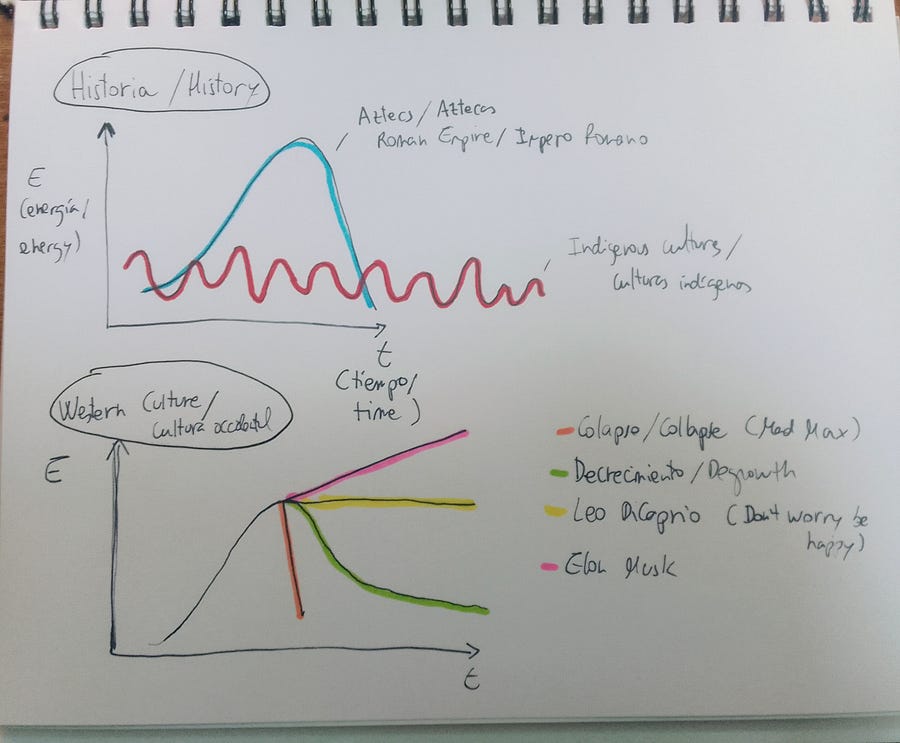 Historia / History
Aztecs / Aztecas
Roman Empire / Impero Romano
E
(energía /
energy)
Indigenous cultures /
Culturas indígenas
t
(tiempo /
time)
Western Culture /
Cultura occidental
E
Colapso / Collapse (Mad Max)
Decrecimiento / Degrowth
Leo DiCaprio (Don't worry be
happy)
Elon Musk
t